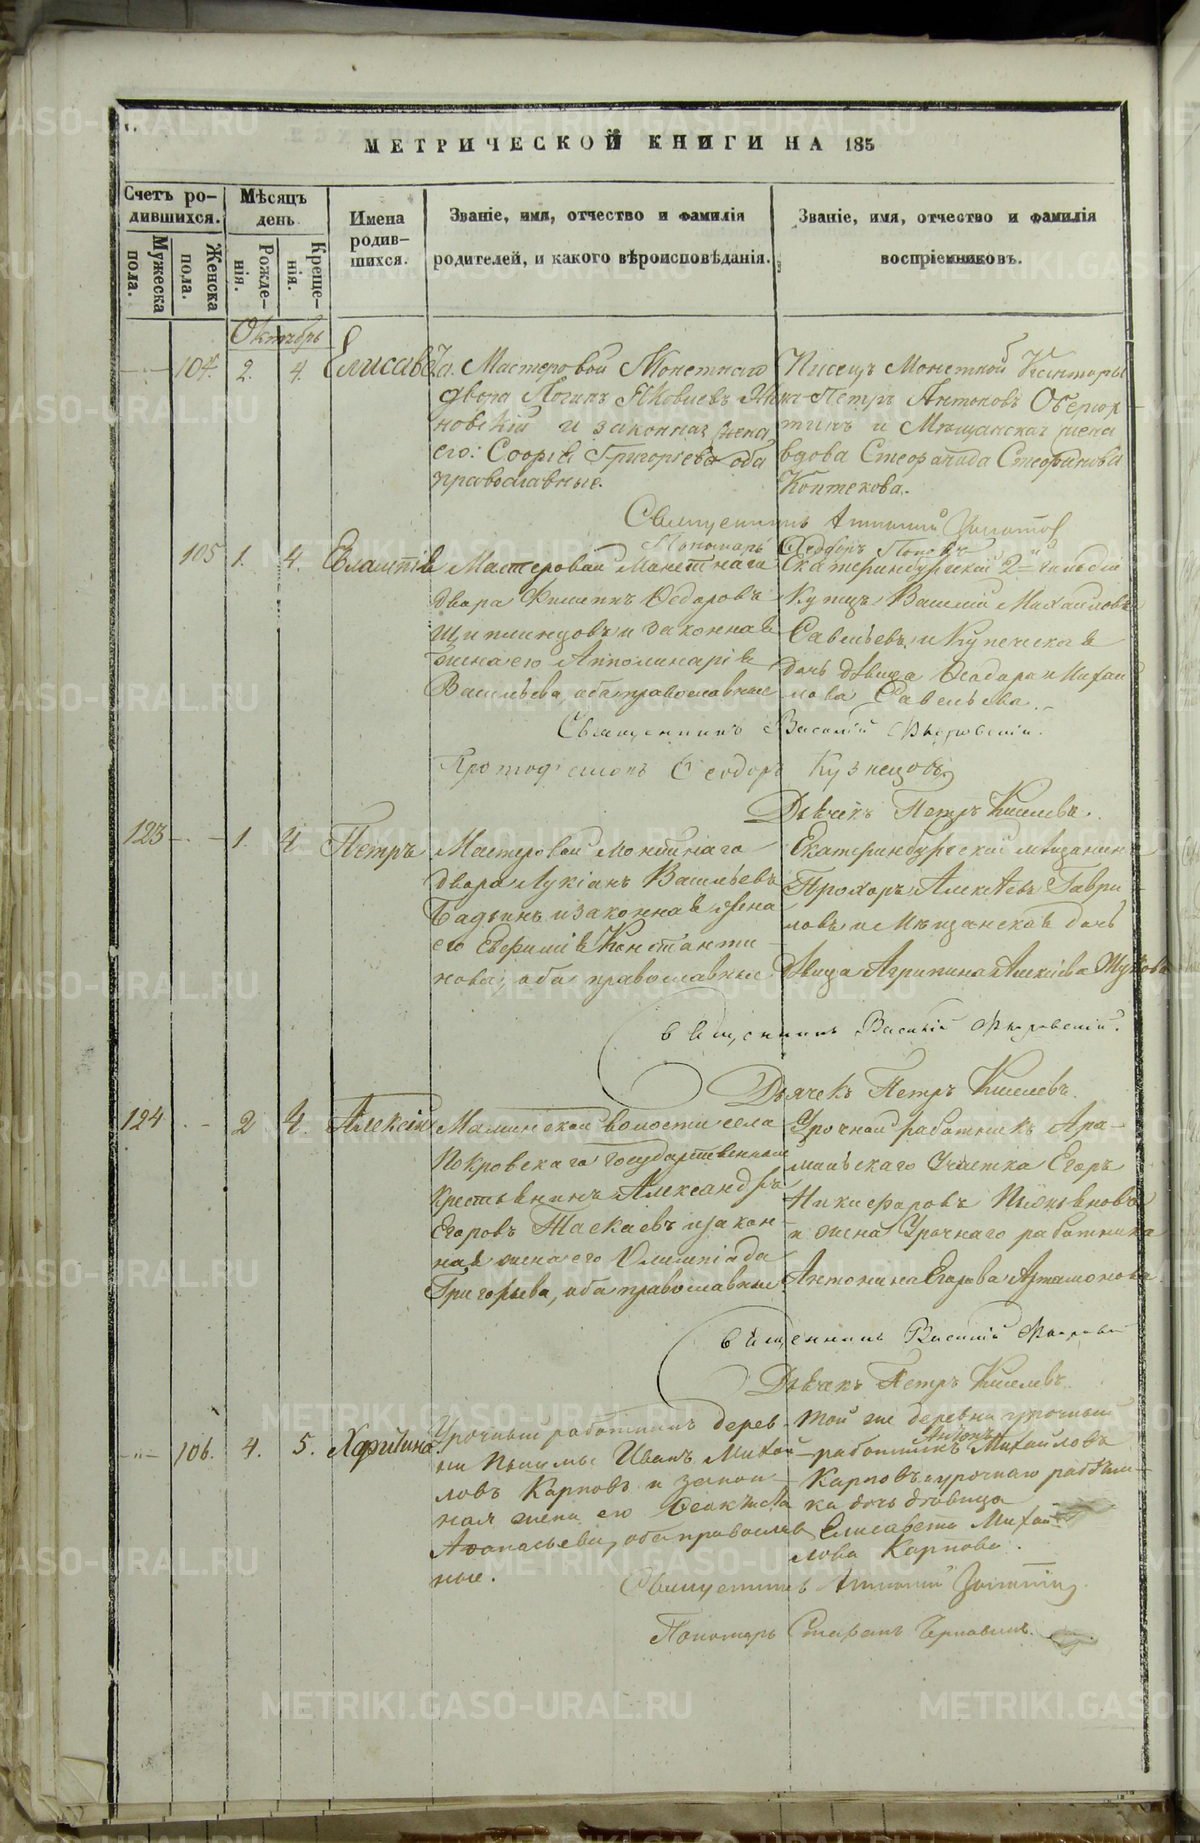 МЕТРИЧЕСКОЙ КНИГИ НА 185
Счетъ родившихся.
Мужеска пола.
Женска пола.
Мѣсяцъ день
Рожденія.
Крещенія.
Имена родившихся.
Званіе, имя, отчество и фамилія родителей, и какого вѣроисповѣданія.
Званіе, имя, отчество и фамилія воспріемниковъ.
Октябрь
104. 2. 4. Елисавета.
Мастеровой Монетнаго
двора Логинъ Яковлевъ
новскій и законная жена
его: Софія Григорьева оба
православные.
Писецъ Монетной Конторы
Петръ Антоновъ Оберюх-
тинъ и Мѣщанская жена
вдова Стефанида Стефанова
Коптекова.
Священникъ
Пономарь Ѳеодоръ Поповъ
105 1. 4. Евлампія
Мастеровой Монетнаго
двора Филипъ Ѳедоровъ
Щипицовъ и законная
жена его Апполинарія
Васильева, оба православные
Екатеринбургской 2й гильдіи
Купецъ Василій Михайловъ
Савельевъ, и Купеческая
дочь дѣвица Ѳеодора Михай
лова Савельева.
Священникъ Василій
Протодіаконъ Ѳеодоръ Кузнецовъ
Дьячекъ Петръ Киселевъ.
123 1. 4 Петръ
Мастеровой Монетнаго
двора Лукіанъ Васильевъ
Бадьинъ и законная жена
его Евфимія Константи
нова, оба православные
Екатеринбургскій мѣщанинъ
Прохоръ Алексѣевъ Гаври
ловъ и Мѣщанская дочь
дѣвица Агрипина Алексіева Жукова
Священникъ Василій
Дьячекъ Петръ Киселевъ.
124 2 4. Алексій
Маминской волости села
Покровскаго государственный
крестьянинъ Александръ
Егоровъ Таскаевъ и закон-
ная жена его Олимпіада
Григорьева, оба православные
Урочной работникъ Ара-
мильскаго Участка Егоръ
Никифоровъ
и жена Урочнаго работника
Антонина Егорова Артамонова.
Священникъ Василій
Дьячекъ Петръ Киселевъ
106. 4. 5. Харитина.
Урочный работникъ дерев-
ни Пышмы Иванъ Михай-
ловъ Карповъ и закон-
ная жена его Ѳеоктиста
Аѳанасьева, оба православ
ные.
Той же деревни урочный
работникъ Антонъ Михайловъ
Карповъ и урочнаго работни-
ка дочь дѣвица
Елисавета Михай
лова Карпова.
Священникъ
Пономарь Стефанъ Чернавинъ.
METRIKI.GASO-URAL.RU